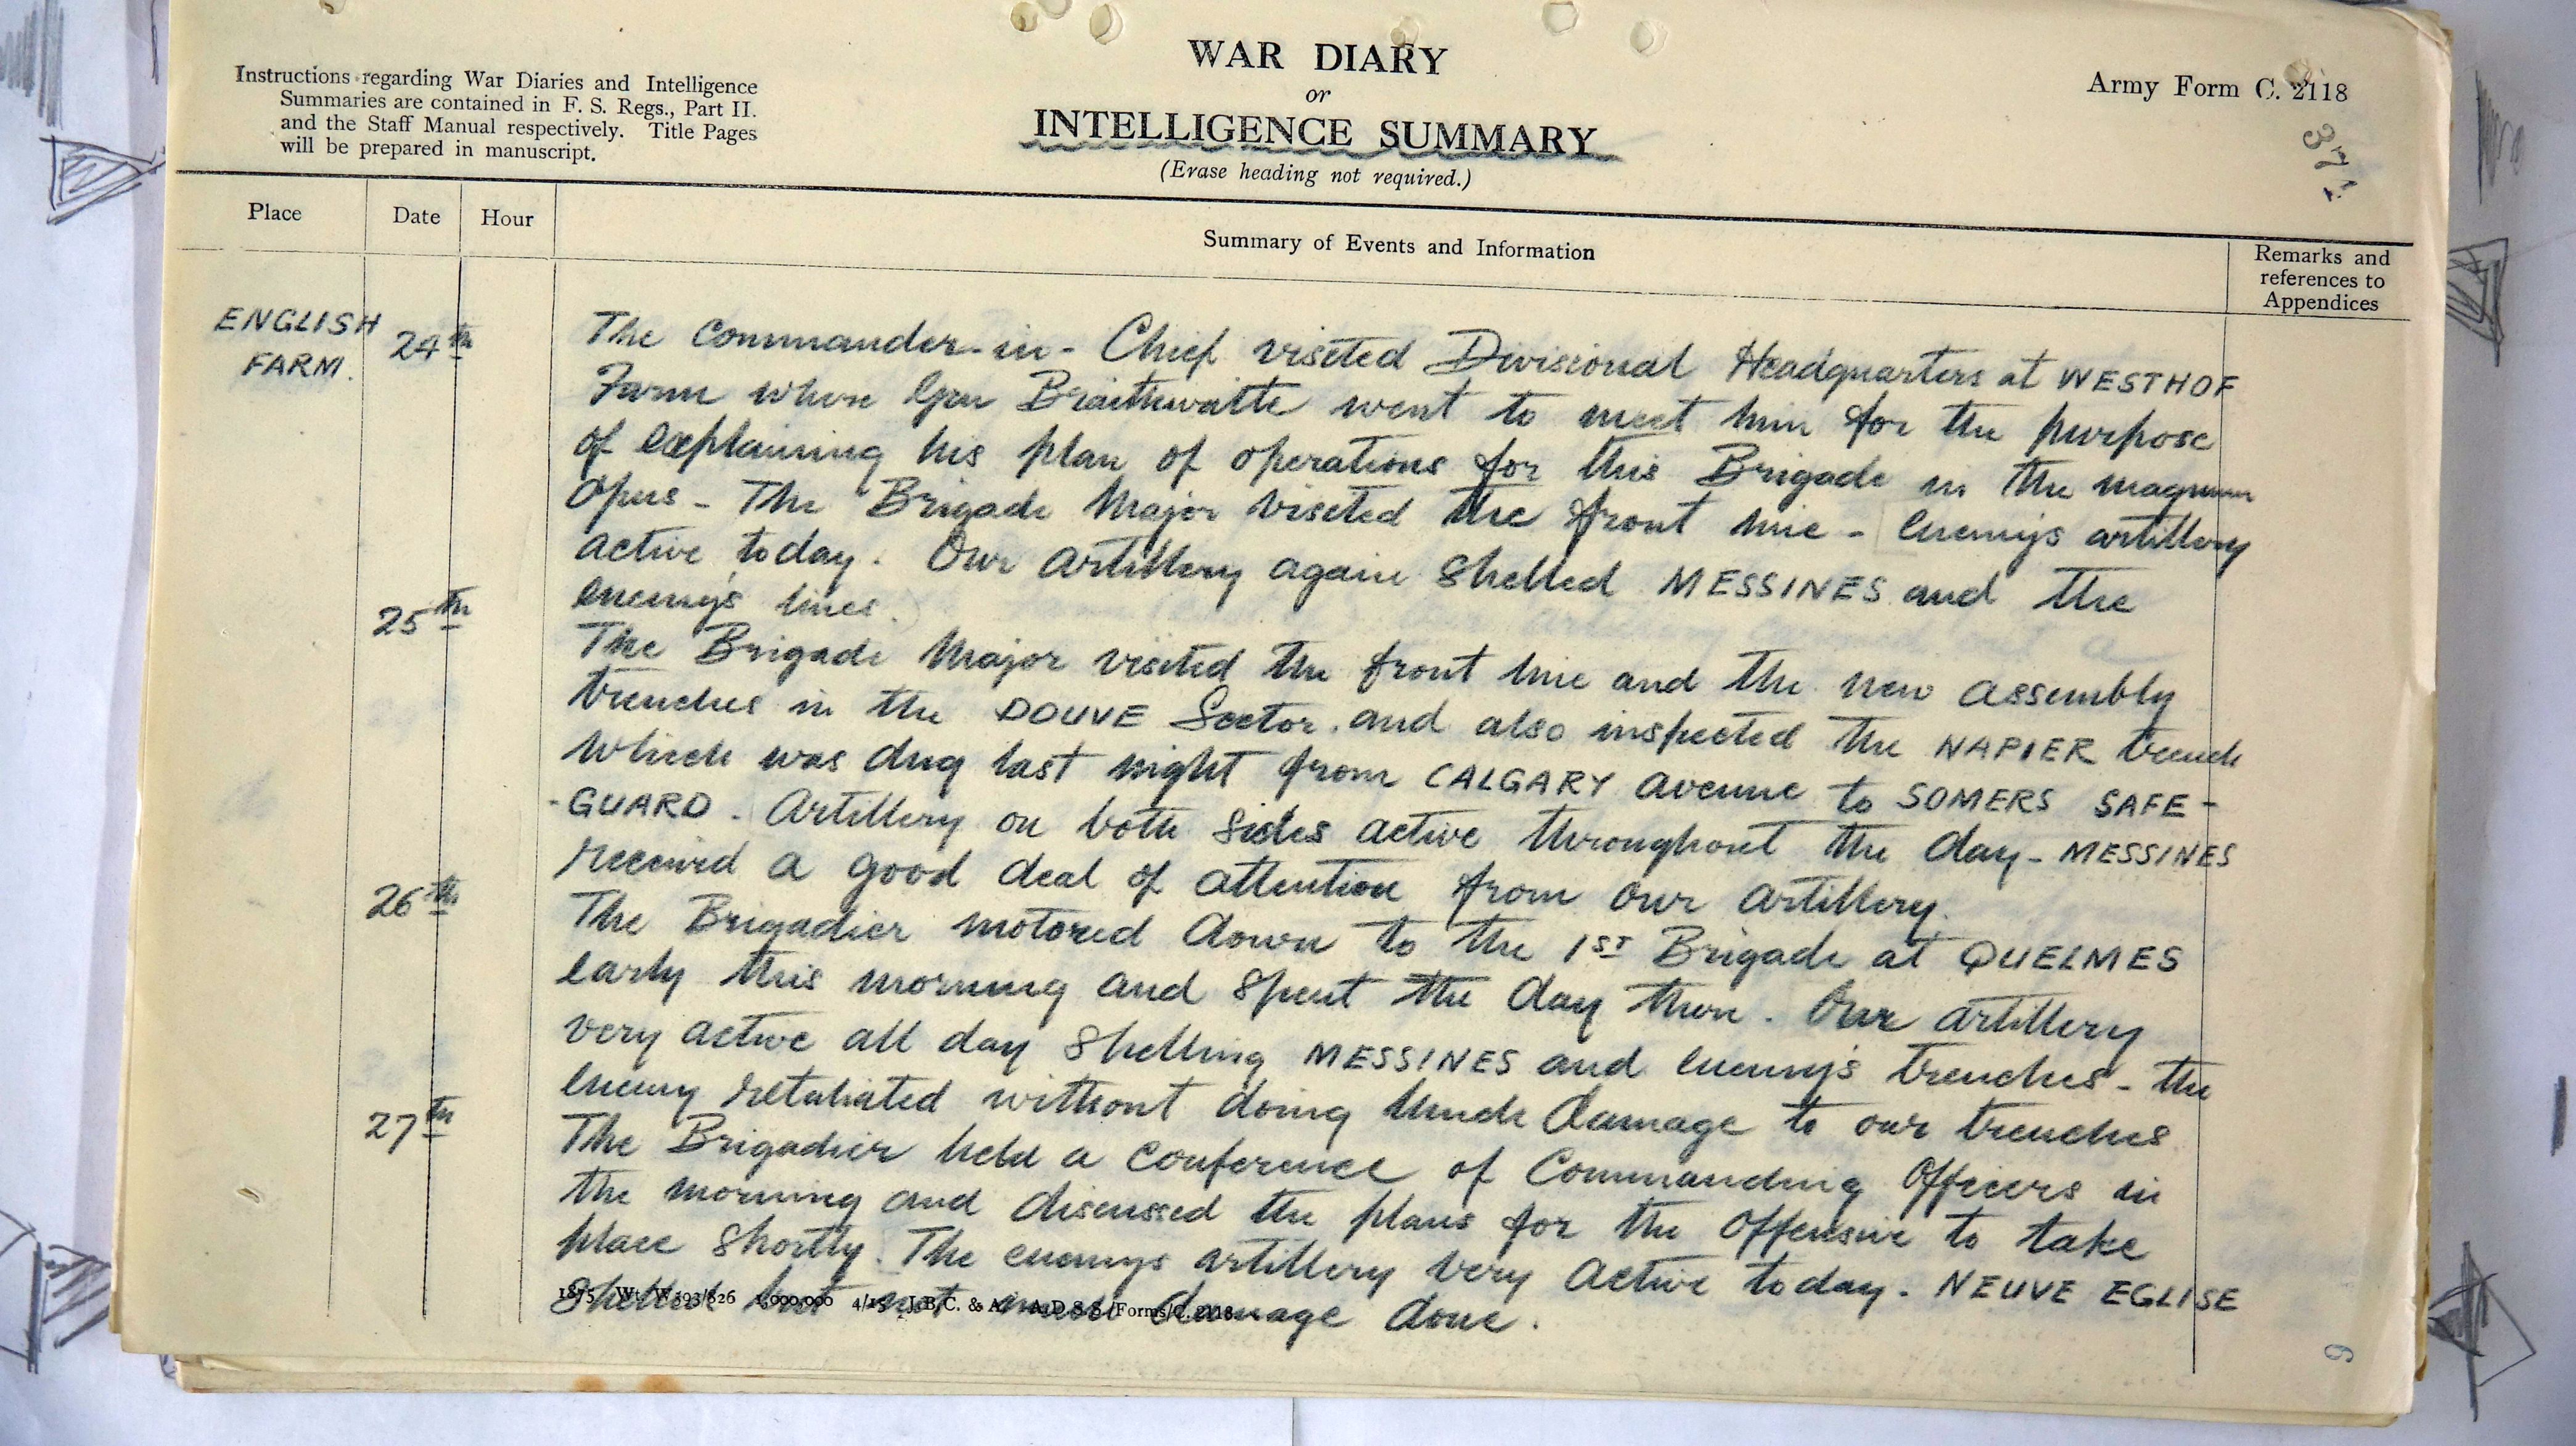 WAR DIARY
or
INTELLIGENCE SUMMARY
(Erase heading not required.)
Instructions regarding War Diaries and Intelligence
Summaries are contained in F. S. Regs., Part II.
and the Staff Manual respectively. Title Pages
will be prepared in manuscript.
Army Form C. 2118
371
Place
Date
Hour
Summary of Events and Information
Remarks and
references to
Appendices
ENGLISH
FARM.
24th
The Commander-in-Chief visited Divisional Headquarters at WESTHOF
Farm where Gen Braithwaite went to meet him for the purpose
of explaining his plan of operations for this Brigade in the magnum
opus - The Brigade Major visited the front line - Enemy's artillery
active today. Our artillery again shelled MESSINES and the
enemy's lines.
25th
The Brigade Major visited the front line and the new assembly
trenches in the DOUVE Sector. and also inspected the NAPIER trench
which was dug last night from CALGARY avenue to SOMERS SAFE-
-GUARD. Artillery on both sides active throughout the day - MESSINES
received a good deal of attention from our artillery.
26th
The Brigadier motored down to the 1ST Brigade at QUELMES
early this morning and spent the day there. Our artillery
very active all day shelling MESSINES and enemy's trenches - the
enemy retaliated without doing much damage to our trenches
27th
The Brigadier held a conference of Commanding Officers in
the morning and discussed the plans for the offensive to take
place shortly. The enemys artillery very active today. NEUVE EGLISE
shelled but not much damage done.
1875 Wt. W593/826 1,000,000 4/15 J.B.C. & A. A.D.S.S./Forms/C. 2118.
6